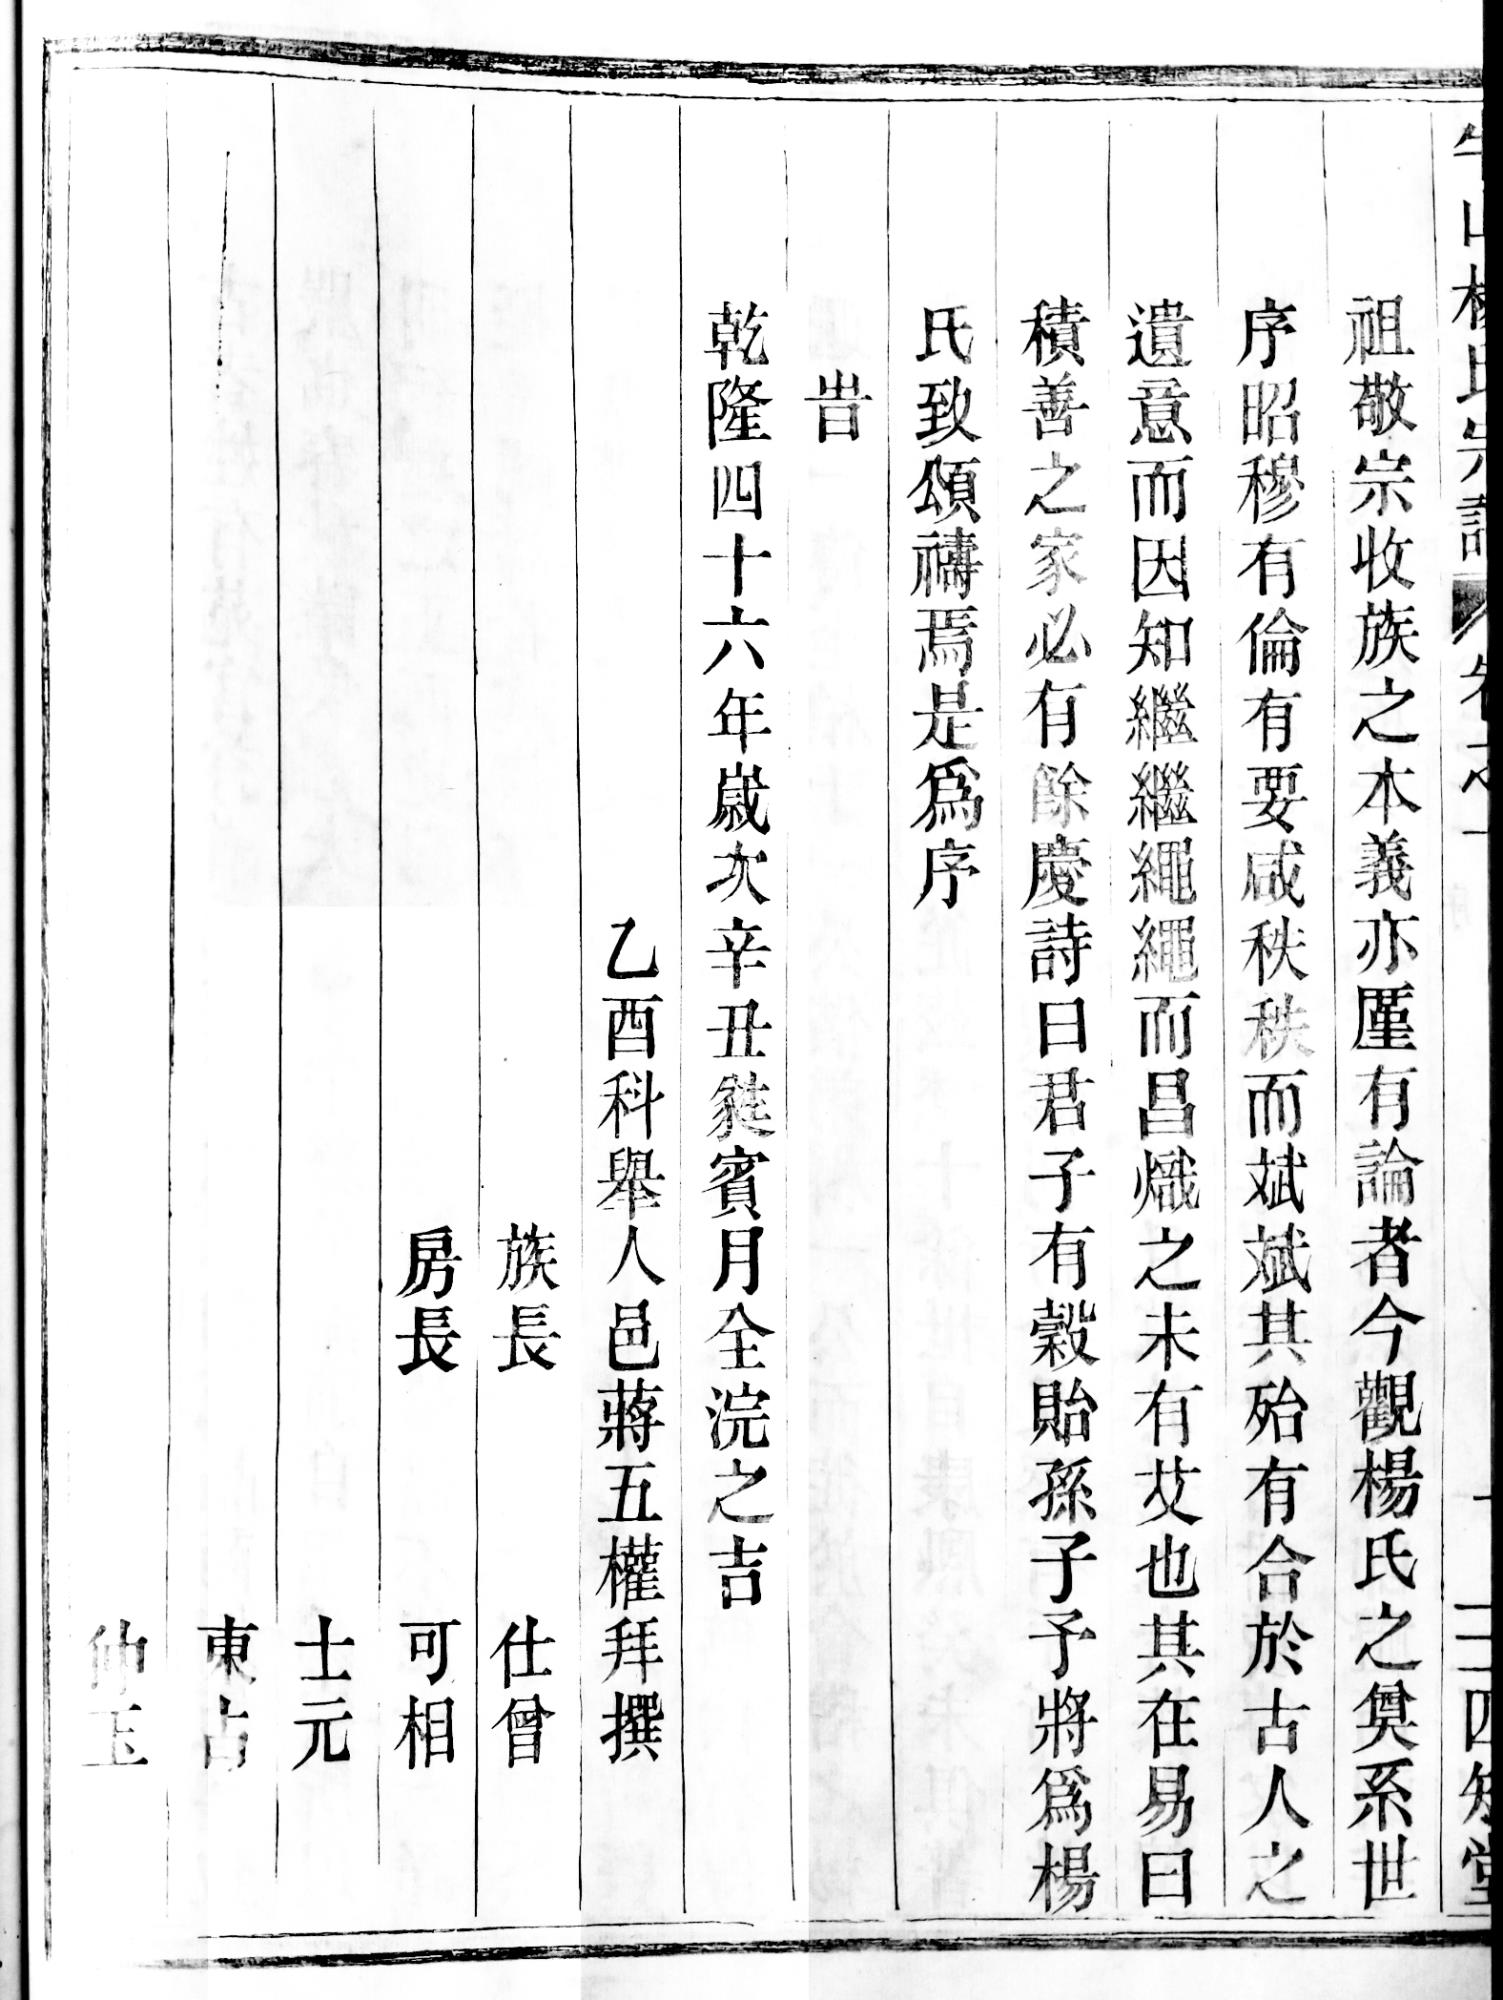 山楊氏宗譜 卷之一 四知堂
祖敬宗收族之本義亦厪有論者今觀楊氏之奠系世
序昭穆有倫有要咸秩秩而斌斌其殆有合於古人之
遺意而因知繼繼繩繩而昌熾之未有艾也其在易曰
積善之家必有餘慶詩曰君子有穀貽孫子予將爲楊
氏致頌禱焉是爲序
旹
乾隆四十六年歲次辛丑蕤賓月全浣之吉
乙酉科舉人邑蔣五權拜撰
族長 仕曾
房長 可相
士元
東古
仲玉